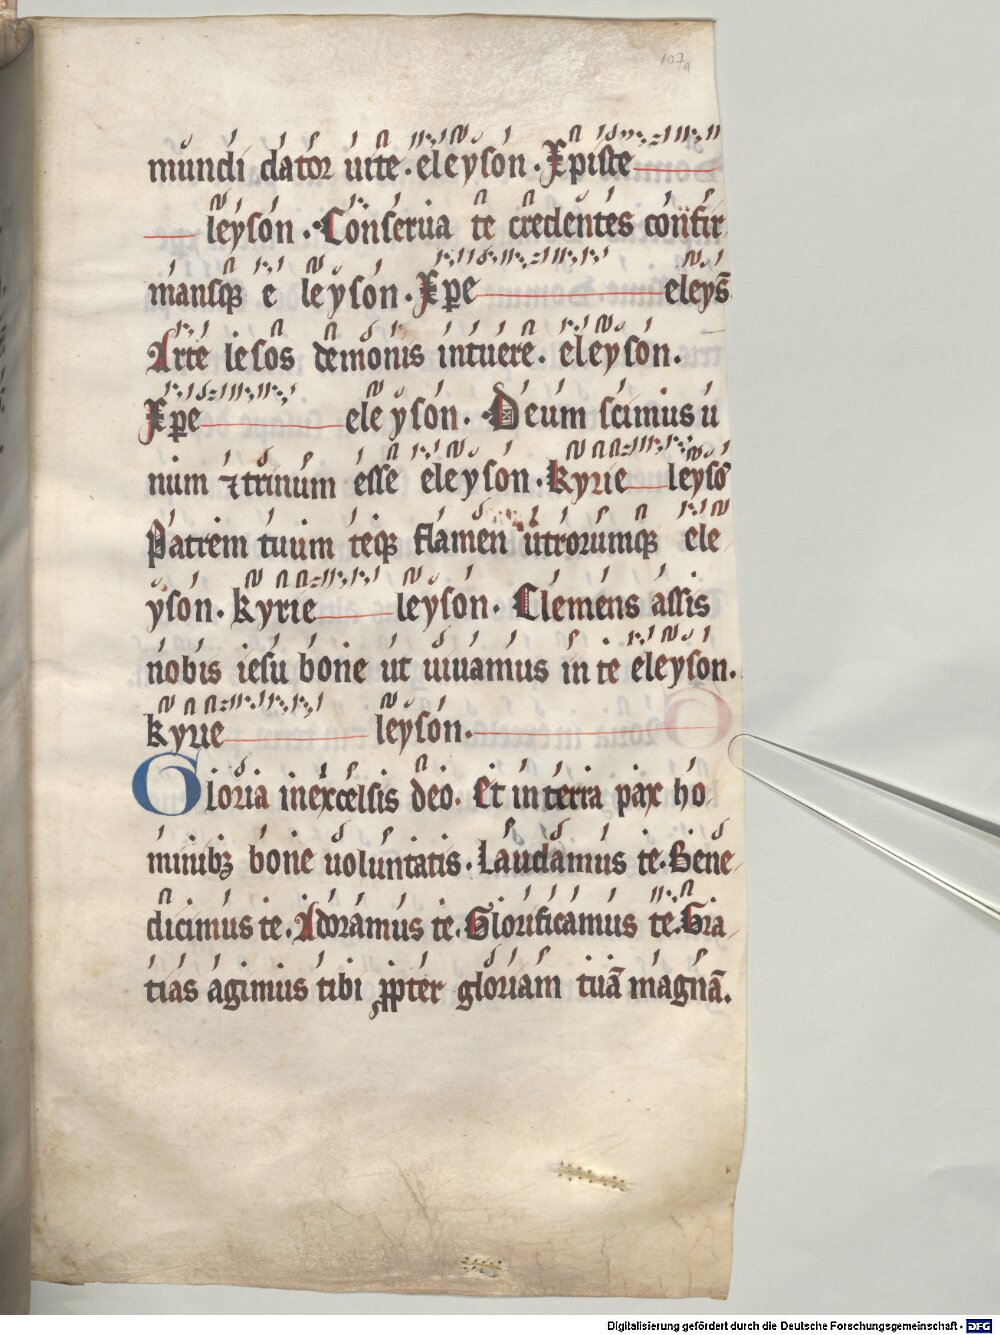 107a
mundi dator uite. eleyson. Xpiste
leyson. Conserua te credentes confir
mansq; e leyson. Xpe eleyso̅
Arte lesos demonis intuere. eleyson.
Xpe eleyson. Deum scimus u
num ⁊ trinum esse eleyson. kyrie leyso̅
Patrem tuum teq; flamen utrorumq; ele
yson. kyrie leyson. Clemens assis
nobis iesu bone ut uiuamus in te eleyson.
kyrie leyson.
Gloria in excelsis deo. Et in terra pax ho
minib; bone uoluntatis. Laudamus te. Bene
dicimus te. Adoramus te. Glorificamus te. Gra
tias agimus tibi ꝓpter gloriam tua̅ magna̅.
Digitalisierung gefördert durch die Deutsche Forschungsgemeinschaft - DFG